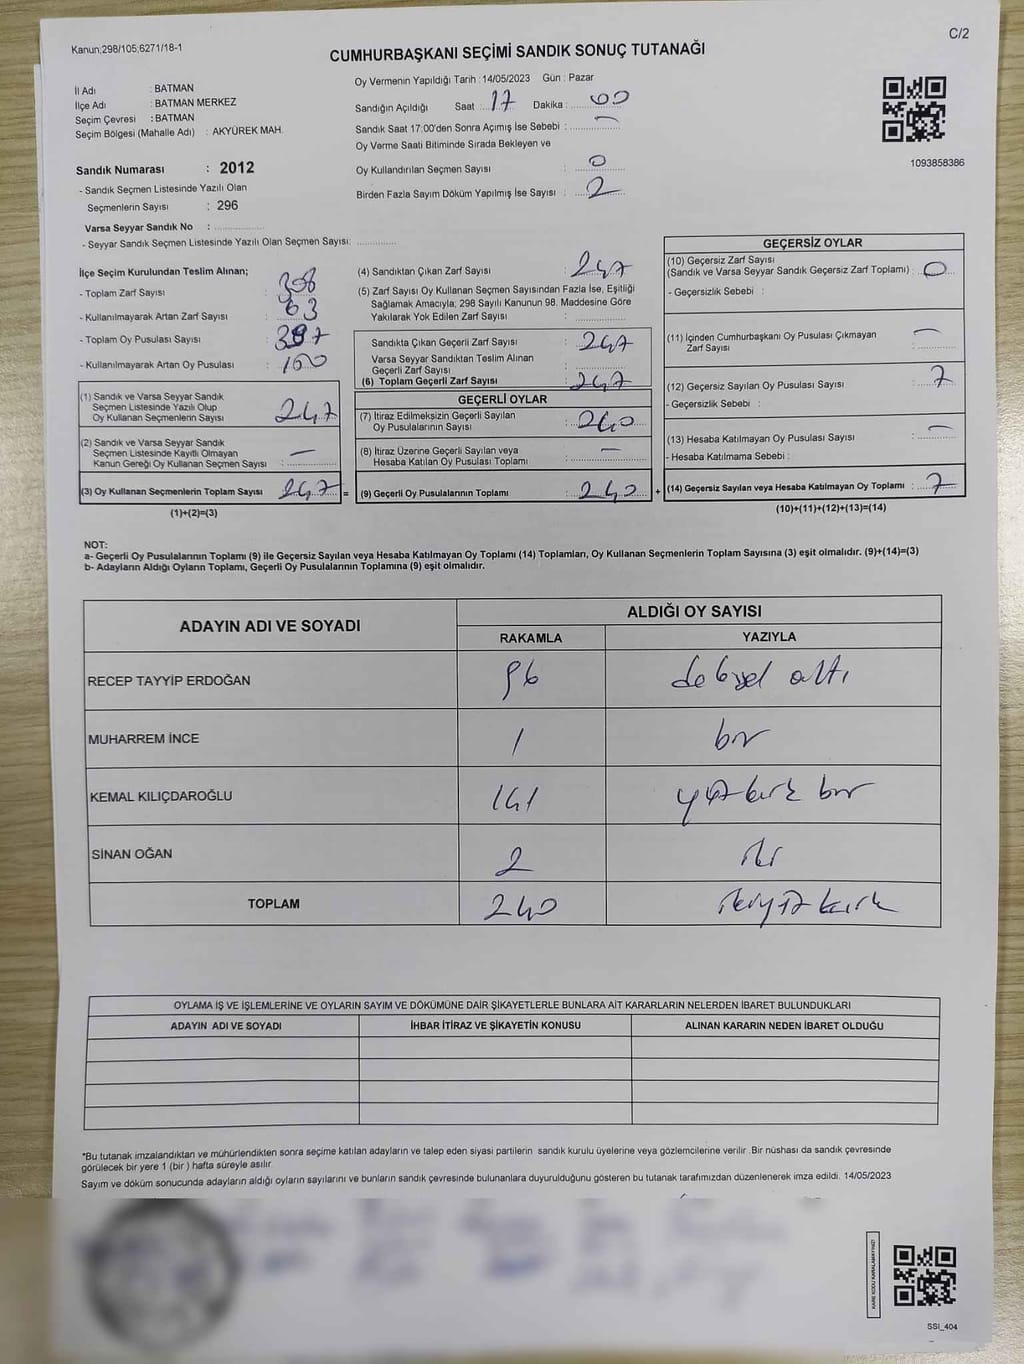 Kanun;298/105;6271/18-1
C/2
CUMHURBAŞKANI SEÇİMİ SANDIK SONUÇ TUTANAĞI
İl Adı : BATMAN
İlçe Adı : BATMAN MERKEZ
Seçim Çevresi : BATMAN
Seçim Bölgesi (Mahalle Adı) : AKYÜREK MAH.
Sandık Numarası : 2012
- Sandık Seçmen Listesinde Yazılı Olan
Seçmenlerin Sayısı : 296
Varsa Seyyar Sandık No :
- Seyyar Sandık Seçmen Listesinde Yazılı Olan Seçmen Sayısı:
Oy Vermenin Yapıldığı Tarih :14/05/2023 Gün : Pazar
Sandığın Açıldığı Saat : 17 Dakika : 00
Sandık Saat 17:00'den Sonra Açımış İse Sebebi : —
Oy Verme Saati Bitiminde Sırada Bekleyen ve
Oy Kullandırılan Seçmen Sayısı : 0
Birden Fazla Sayım Döküm Yapılmış İse Sayısı : 2
1093858386
İlçe Seçim Kurulundan Teslim Alınan;
- Toplam Zarf Sayısı :
- Kullanılmayarak Artan Zarf Sayısı : 63
- Toplam Oy Pusulası Sayısı :
- Kullanılmayarak Artan Oy Pusulası :
(1) Sandık ve Varsa Seyyar Sandık
Seçmen Listesinde Yazılı Olup
Oy Kullanan Seçmenlerin Sayısı : 247
(2) Sandık ve Varsa Seyyar Sandık
Seçmen Listesinde Kayıtlı Olmayan
Kanun Gereği Oy Kullanan Seçmen Sayısı : —
(3) Oy Kullanan Seçmenlerin Toplam Sayısı : 247 =
(1)+(2)=(3)
(4) Sandıktan Çıkan Zarf Sayısı : 247
(5) Zarf Sayısı Oy Kullanan Seçmen Sayısından Fazla İse, Eşitliği
Sağlamak Amacıyla; 298 Sayılı Kanunun 98. Maddesine Göre
Yakılarak Yok Edilen Zarf Sayısı :
Sandıkta Çıkan Geçerli Zarf Sayısı : 247
Varsa Seyyar Sandıktan Teslim Alınan
Geçerli Zarf Sayısı :
(6) Toplam Geçerli Zarf Sayısı : 247
GEÇERLİ OYLAR
(7) İtiraz Edilmeksizin Geçerli Sayılan
Oy Pusulalarının Sayısı : 240
(8) İtiraz Üzerine Geçerli Sayılan veya
Hesaba Katılan Oy Pusulası Toplamı : —
(9) Geçerli Oy Pusulalarının Toplamı : 240 +
GEÇERSİZ OYLAR
(10) Geçersiz Zarf Sayısı
(Sandık ve Varsa Seyyar Sandık Geçersiz Zarf Toplamı) : 0
- Geçersizlik Sebebi :
(11) İçinden Cumhurbaşkanı Oy Pusulası Çıkmayan
Zarf Sayısı : —
(12) Geçersiz Sayılan Oy Pusulası Sayısı : 7
- Geçersizlik Sebebi :
(13) Hesaba Katılmayan Oy Pusulası Sayısı : —
- Hesaba Katılmama Sebebi :
(14) Geçersiz Sayılan veya Hesaba Katılmayan Oy Toplamı : 7
(10)+(11)+(12)+(13)=(14)
NOT:
a- Geçerli Oy Pusulalarının Toplamı (9) ile Geçersiz Sayılan veya Hesaba Katılmayan Oy Toplamı (14) Toplamları, Oy Kullanan Seçmenlerin Toplam Sayısına (3) eşit olmalıdır. (9)+(14)=(3)
b- Adayların Aldığı Oyların Toplamı, Geçerli Oy Pusulalarının Toplamına (9) eşit olmalıdır.
ADAYIN ADI VE SOYADI ALDIĞI OY SAYISI
RAKAMLA YAZIYLA
RECEP TAYYİP ERDOĞAN 96 altı
MUHARREM İNCE 1 bir
KEMAL KILIÇDAROĞLU 141 yüzkırk bir
SİNAN OĞAN 2 iki
TOPLAM 240 ikiyüz kırk
OYLAMA İŞ VE İŞLEMLERİNE VE OYLARIN SAYIM VE DÖKÜMÜNE DAİR ŞİKAYETLERLE BUNLARA AİT KARARLARIN NELERDEN İBARET BULUNDUKLARI
ADAYIN ADI VE SOYADI İHBAR İTİRAZ VE ŞİKAYETİN KONUSU ALINAN KARARIN NEDEN İBARET OLDUĞU
*Bu tutanak imzalandıktan ve mühürlendikten sonra seçime katılan adayların ve talep eden siyasi partilerin sandık kurulu üyelerine veya gözlemcilerine verilir .Bir nüshası da sandık çevresinde
görülecek bir yere 1 (bir ) hafta süreyle asılır.
Sayım ve döküm sonucunda adayların aldığı oyların sayılarını ve bunların sandık çevresinde bulunanlara duyurulduğunu gösteren bu tutanak tarafımızdan düzenlenerek imza edildi. 14/05/2023
KARE KODU KARALAMAYINIZ!
SSI_404